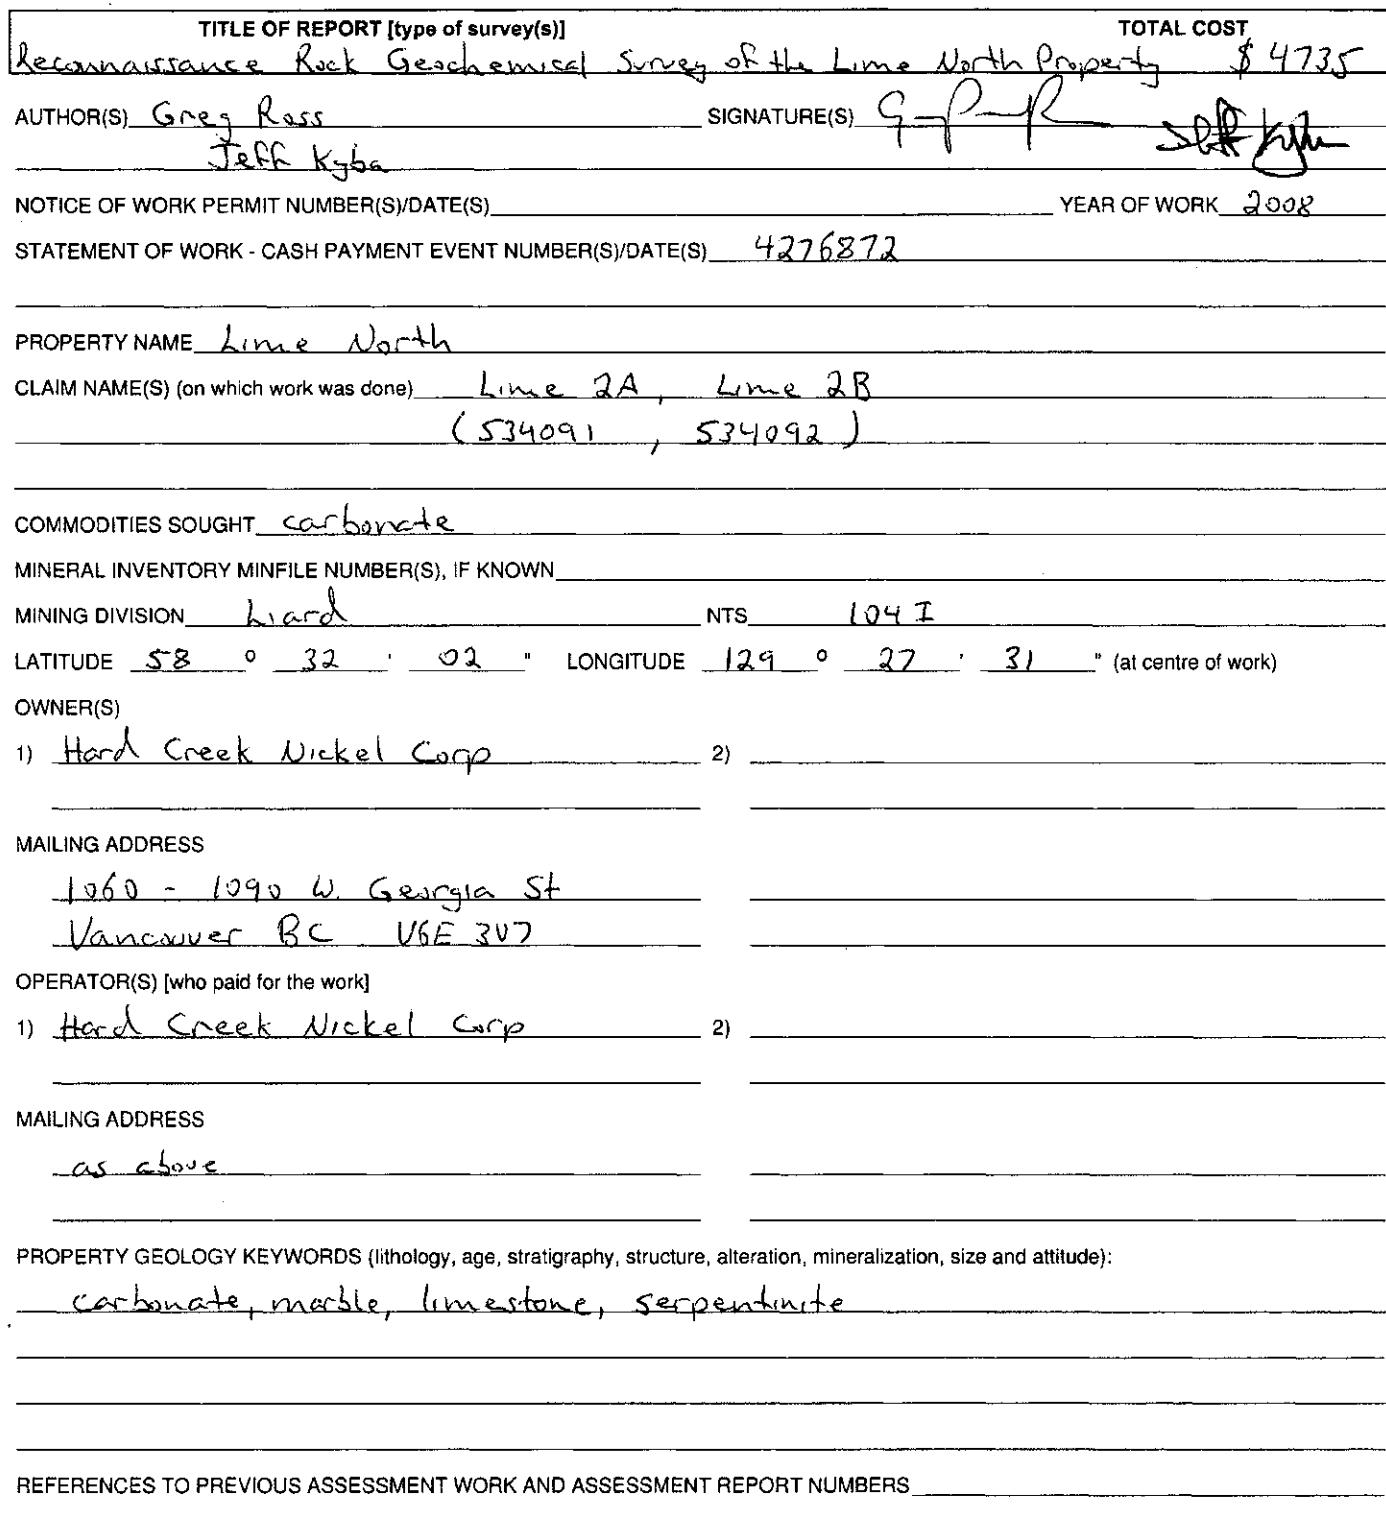 TITLE OF REPORT [type of survey(s)] TOTAL COST
Reconnaissance Rock Geochemical Survey of the Lime North Property $ 4735
AUTHOR(S) Greg Ross SIGNATURE(S)
Jeff Kyba
NOTICE OF WORK PERMIT NUMBER(S)/DATE(S) YEAR OF WORK 2008
STATEMENT OF WORK - CASH PAYMENT EVENT NUMBER(S)/DATE(S) 4276872
PROPERTY NAME Lime North
CLAIM NAME(S) (on which work was done) Lime 2A, Lime 2B
(534091, 534092)
COMMODITIES SOUGHT carbonate
MINERAL INVENTORY MINFILE NUMBER(S), IF KNOWN
MINING DIVISION Liard NTS 104 I
LATITUDE 58 ° 32 ' 02 " LONGITUDE 129 ° 27 ' 31 " (at centre of work)
OWNER(S)
1) Hard Creek Nickel Corp 2)
MAILING ADDRESS
1060 - 1090 W. Georgia St
Vancouver BC V6E 3V7
OPERATOR(S) [who paid for the work]
1) Hard Creek Nickel Corp 2)
MAILING ADDRESS
as above
PROPERTY GEOLOGY KEYWORDS (lithology, age, stratigraphy, structure, alteration, mineralization, size and attitude):
carbonate, marble, limestone, serpentinite
REFERENCES TO PREVIOUS ASSESSMENT WORK AND ASSESSMENT REPORT NUMBERS